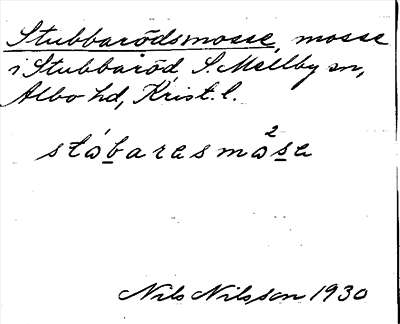 Stubbarödsmosse, mosse
i Stubbaröd, S. Mellby sn,
Albo hd, Krist. l.
ståbaresmå²se
Nils Nilsson 1930